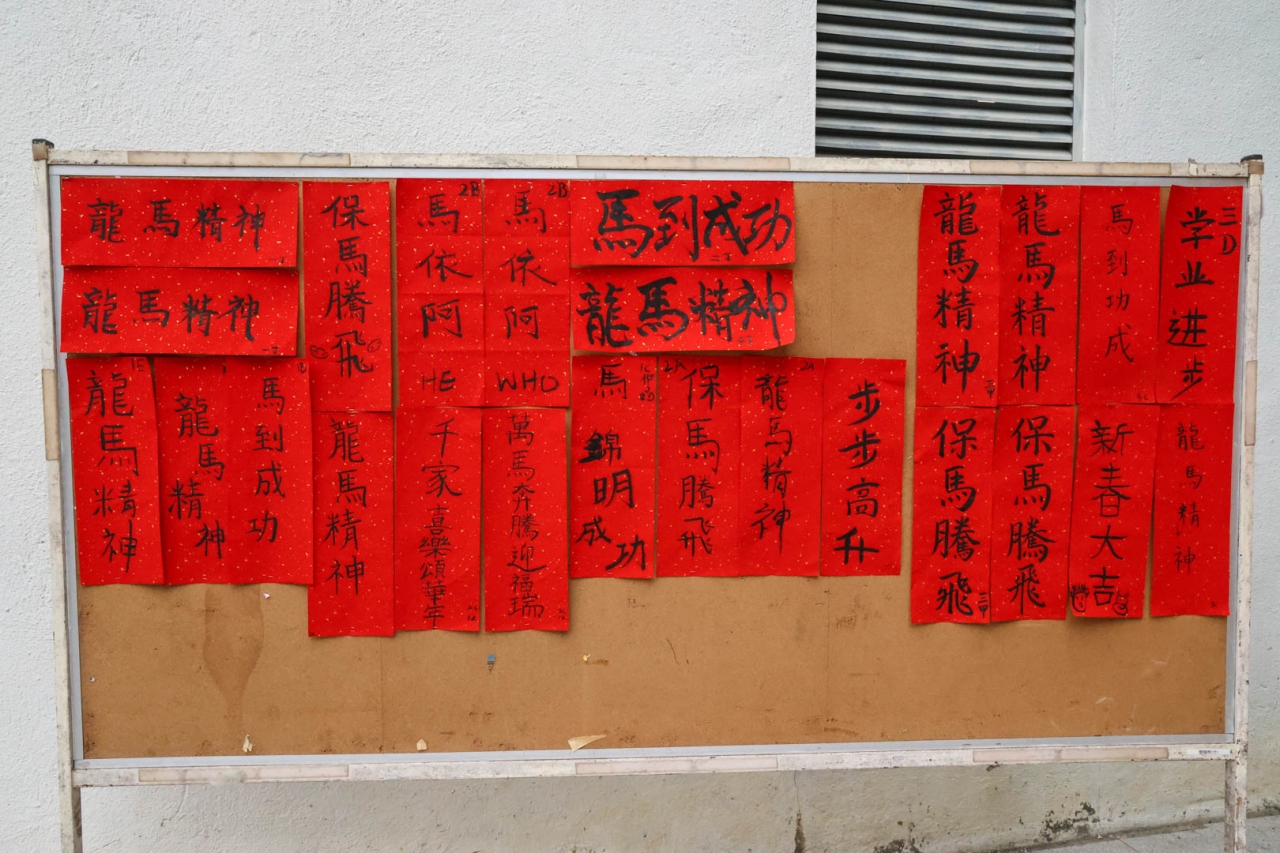 龍馬精神
龍馬精神
保馬騰飛
2B
馬依阿HE
2B
馬依阿WHO
馬到成功
龍馬精神
龍馬精神
龍馬精神
馬到功成
三D
学业进步
1E
龍馬精神
龍馬精神
馬到成功
龍馬精神
千家喜樂頌華年
萬馬奔騰迎福瑞
馬錦明成功
2A
保馬騰飛
2A
龍馬精神
步步高升
保馬騰飛
三甲
保馬騰飛
新春大吉
龍馬精神